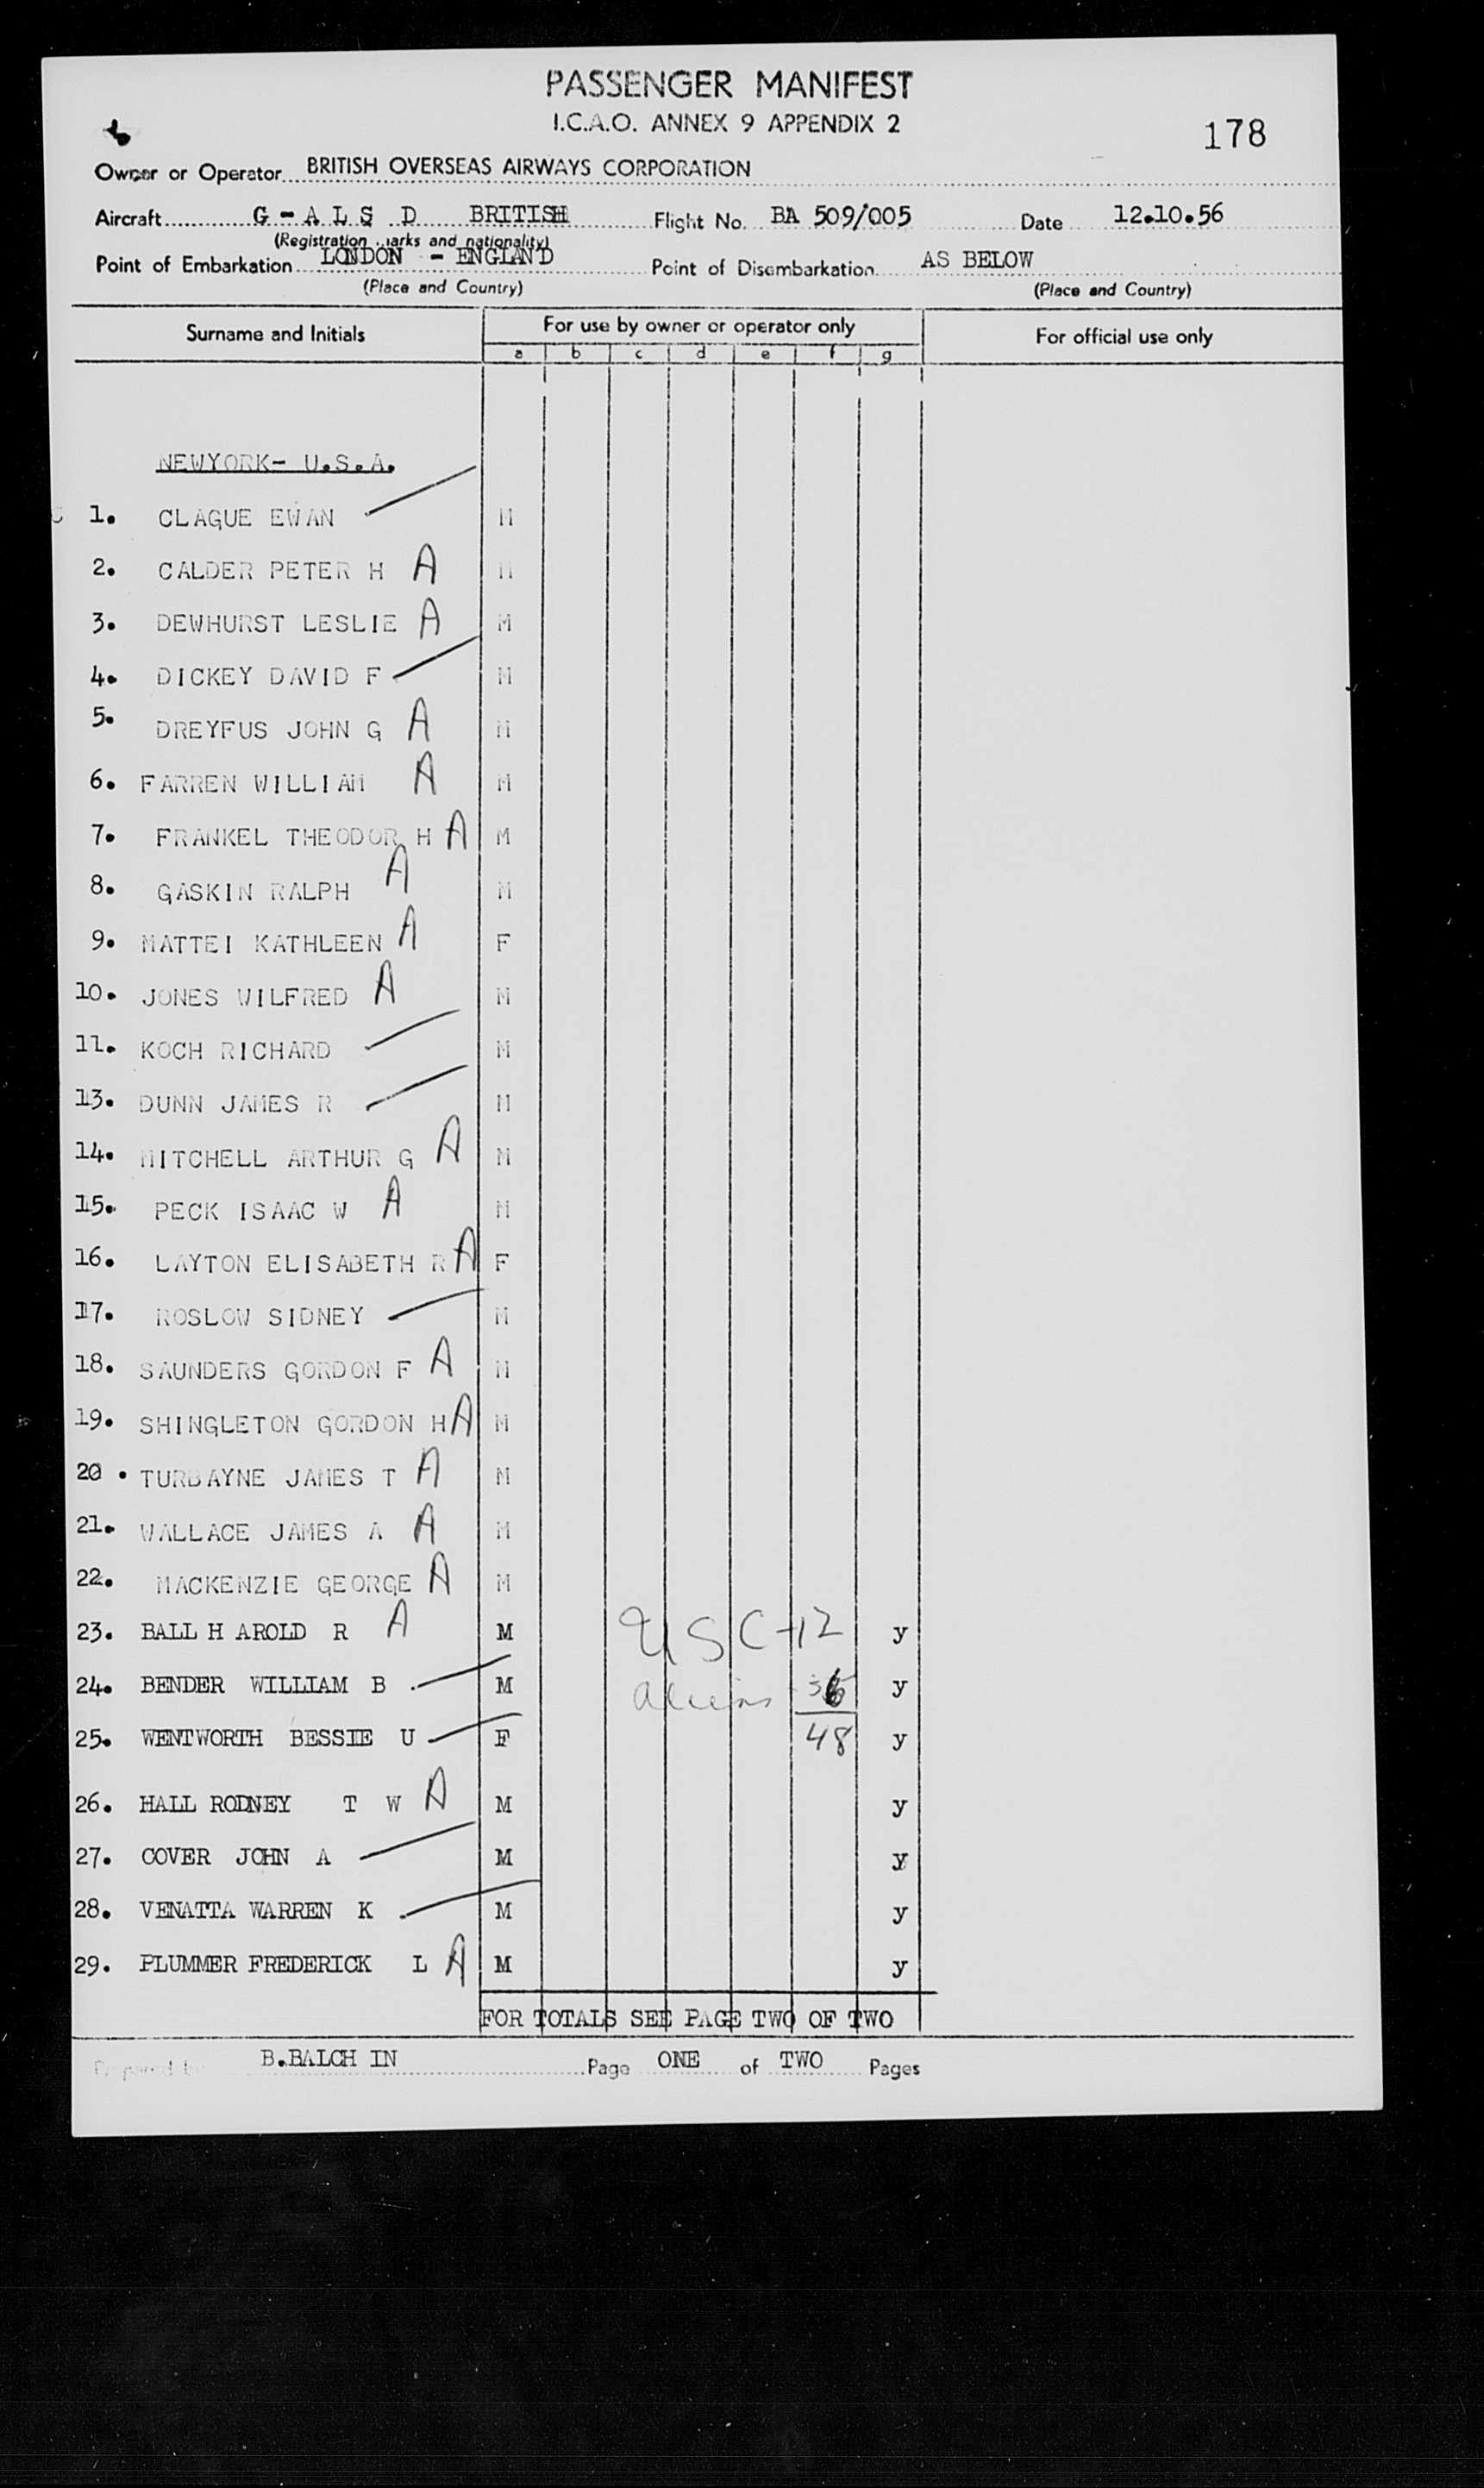 PASSENGER MANIFEST
I.C.A.O. ANNEX 9 APPENDIX 2
178
Owner or Operator BRITISH OVERSEAS AIRWAYS CORPORATION
Aircraft G - A L S D BRITISH Flight No. BA 509/005 Date 12.10.56
(Registration marks and nationality)
Point of Embarkation LONDON - ENGLAND Point of Disembarkation AS BELOW
(Place and Country) (Place and Country)
Surname and Initials For use by owner or operator only For official use only
a b c d e f g
NEWYORK- U.S.A.
1. CLAGUE EWAN M
2. CALDER PETER H A M
3. DEWHURST LESLIE A M
4. DICKEY DAVID F M
5. DREYFUS JOHN G A M
6. FARREN WILLIAM A M
7. FRANKEL THEODOR H A M
8. GASKIN RALPH A M
9. MATTEI KATHLEEN A F
10. JONES WILFRED A M
11. KOCH RICHARD M
13. DUNN JAMES R M
14. MITCHELL ARTHUR G A M
15. PECK ISAAC W A M
16. LAYTON ELISABETH R A F
17. ROSLOW SIDNEY M
18. SAUNDERS GORDON F A M
19. SHINGLETON GORDON H A M
20. TURBAYNE JAMES T A M
21. WALLACE JAMES A A M
22. MACKENZIE GEORGE A M
23. BALL H AROLD R A M USC-12 y
24. BENDER WILLIAM B M aliens 36 y
25. WENTWORTH BESSIE U F 48 y
26. HALL RODNEY T W A M y
27. COVER JOHN A M y
28. VENATTA WARREN K M y
29. PLUMMER FREDERICK L A M y
FOR TOTALS SEE PAGE TWO OF TWO
Prepared by B.BALCH IN Page ONE of TWO Pages